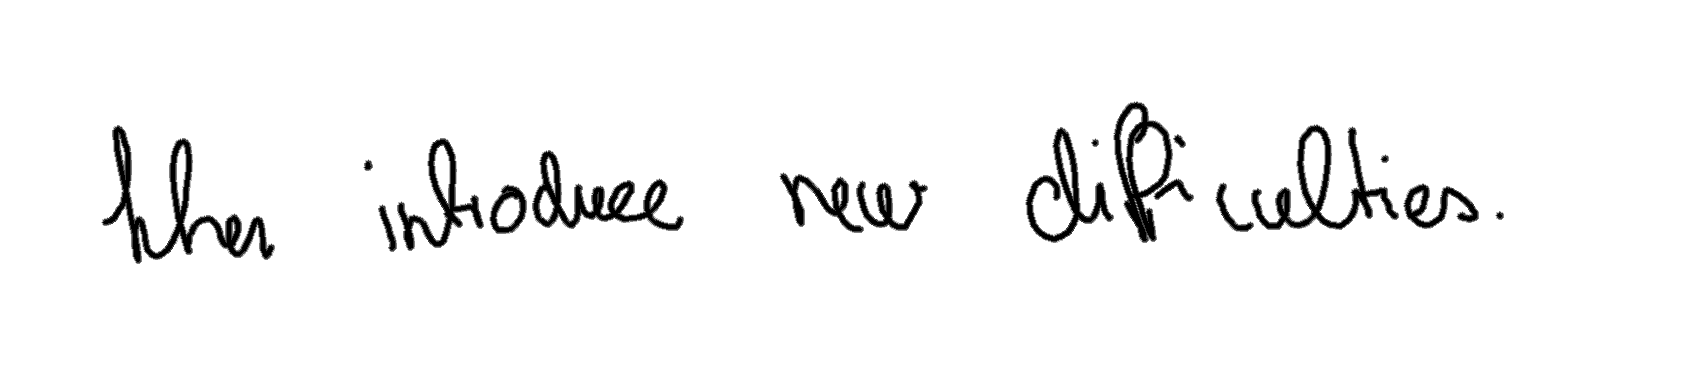 then introduce new difficulties.